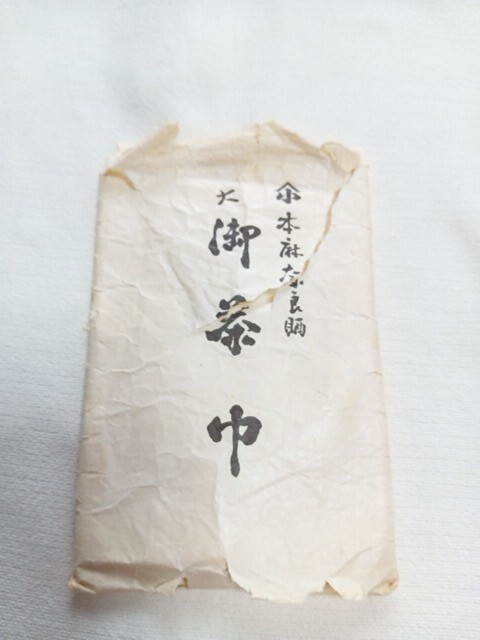 本麻奈良晒
大
御茶巾